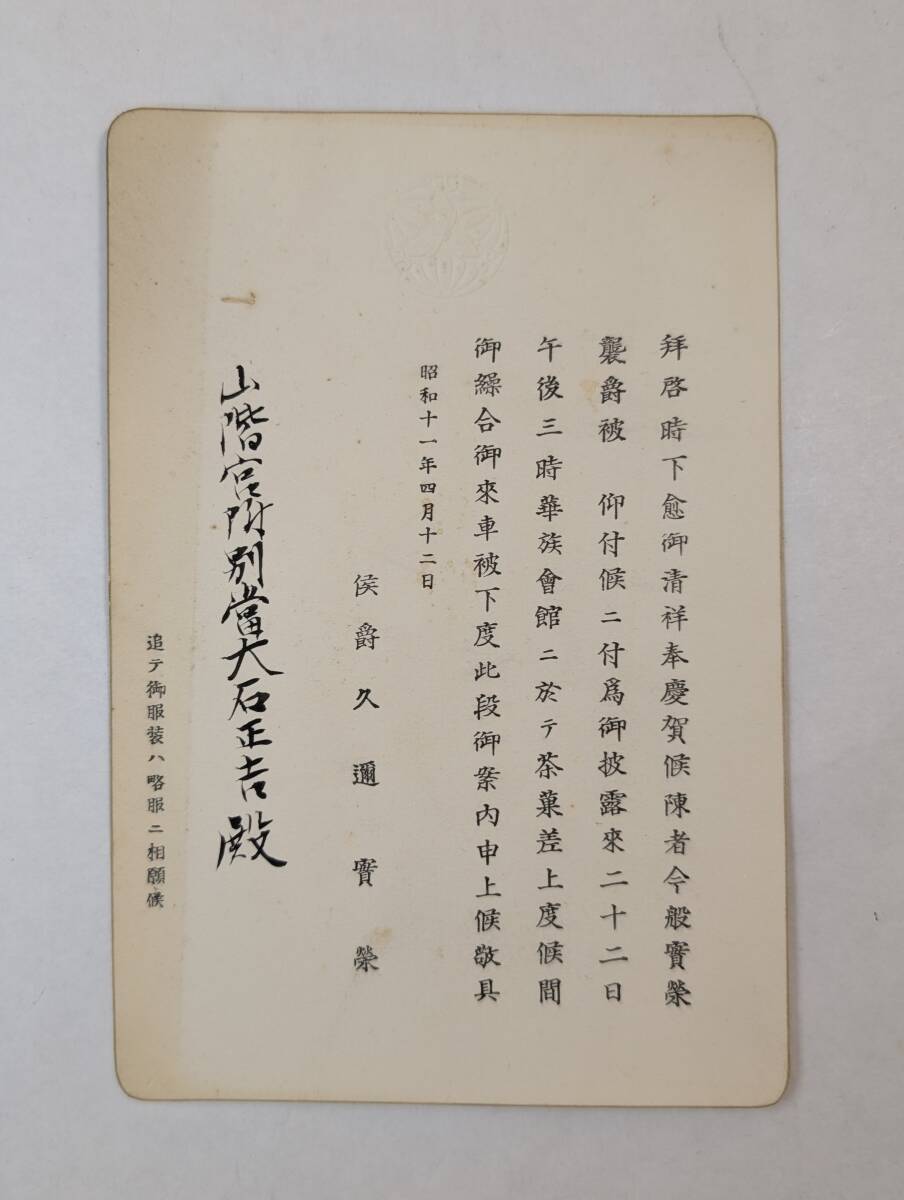 拜啓時下愈御清祥奉慶賀候陳者今般實榮
襲爵被　仰付候ニ付爲御披露來二十二日
午後三時華族會館ニ於テ茶菓差上度候間
御繰合御來車被下度此段御案内申上候敬具
昭和十一年四月十二日
侯爵久邇實榮
山階宮附別當大石正吉殿
追テ御服装ハ略服ニ相願候